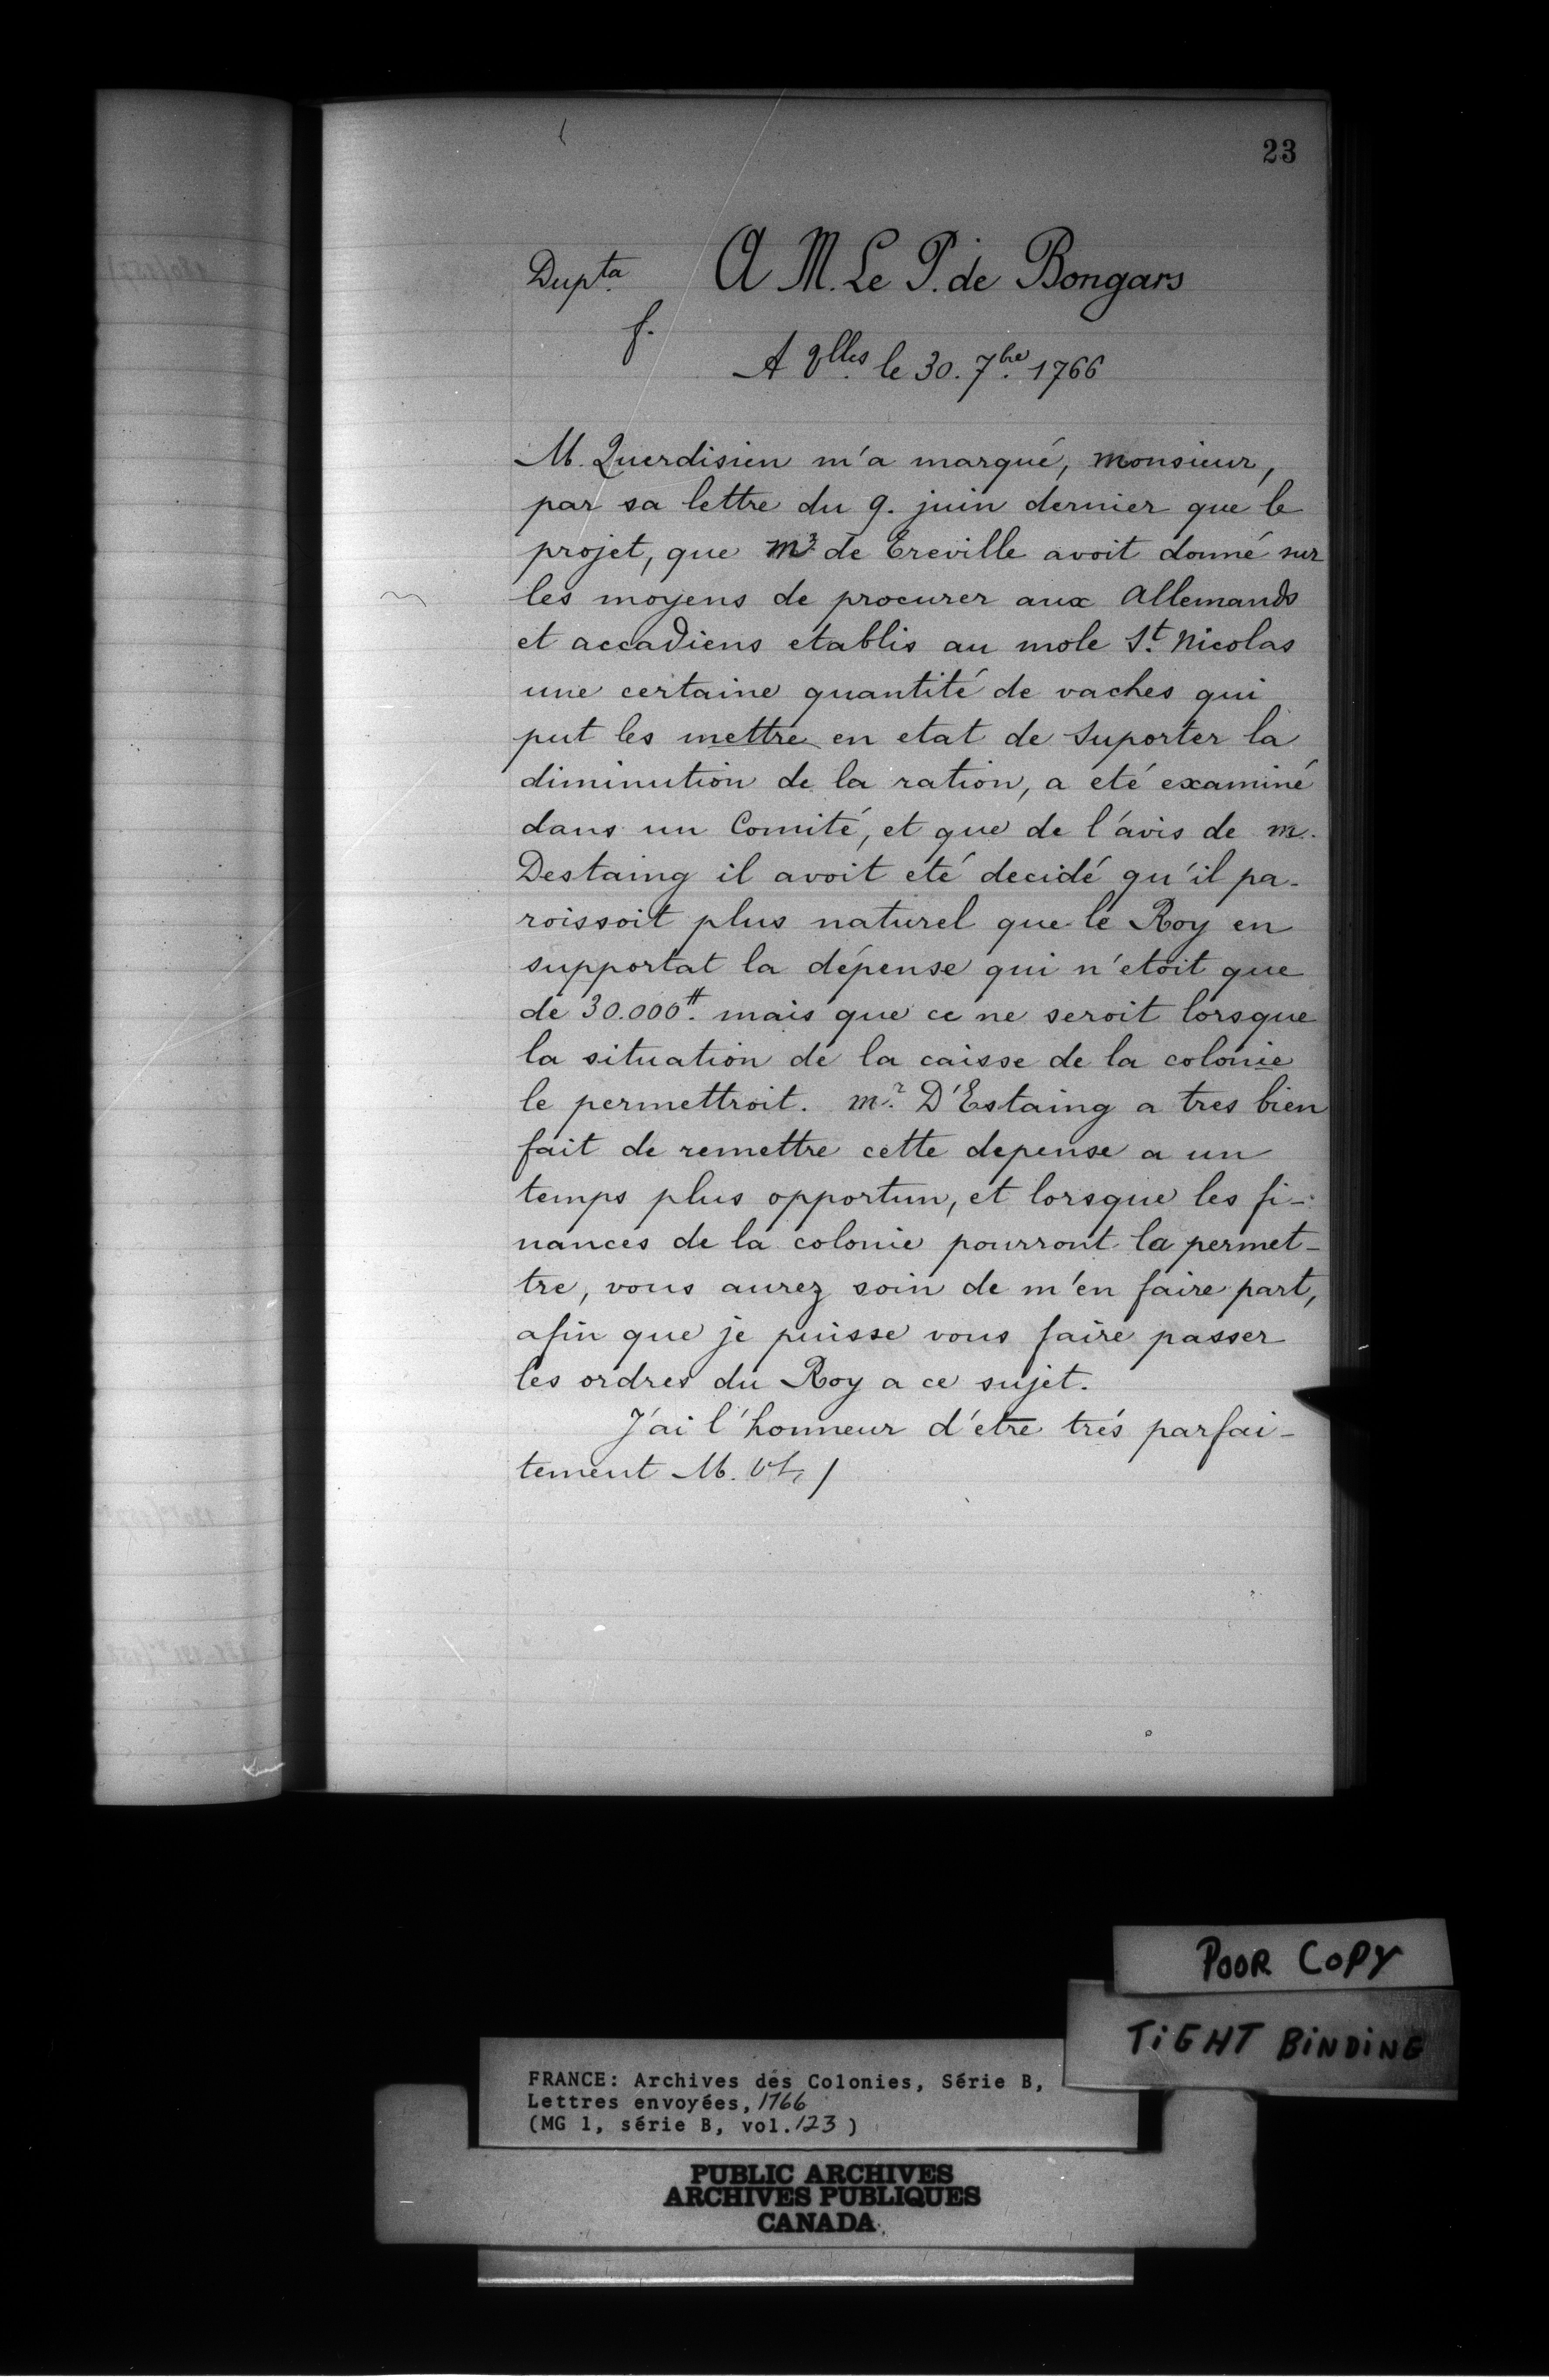 23
Dupta. A M. Le P. de Bongars
f.
A Vlles. le 30. 7bre. 1766
M. Querdisien m'a marqué, monsieur,
par sa lettre du 9. juin dernier que le
projet, que Mr. de Treville avoit donné sur
les moyens de procurer aux allemands
et accadiens etablis au mole St. Nicolas
une certaine quantité de vaches qui
put les mettre en etat de suporter la
diminution de la ration, a eté examiné
dans un Comité, et que de l'avis de m.
Destaing il avoit eté decidé qu'il pa-
roissoit plus naturel que le Roy en
supportat la dépense qui n'etoit que
de 30.000#. mais que ce ne seroit lorsque
la situation de la caisse de la colonie
le permettroit. Mr. D'Estaing a tres bien
fait de remettre cette depense a un
temps plus opportun, et lorsque les fi-
nances de la colonie pourront la permet-
tre, vous aurez soin de m'en faire part,
afin que je puisse vous faire passer
les ordres du Roy a ce sujet.
J'ai l'honneur d'etre trés parfai-
tement M. Vt, /
POOR COPY
TIGHT BINDING
FRANCE: Archives des Colonies, Série B,
Lettres envoyées, 1766
(MG 1, série B, vol. 123)
PUBLIC ARCHIVES
ARCHIVES PUBLIQUES
CANADA